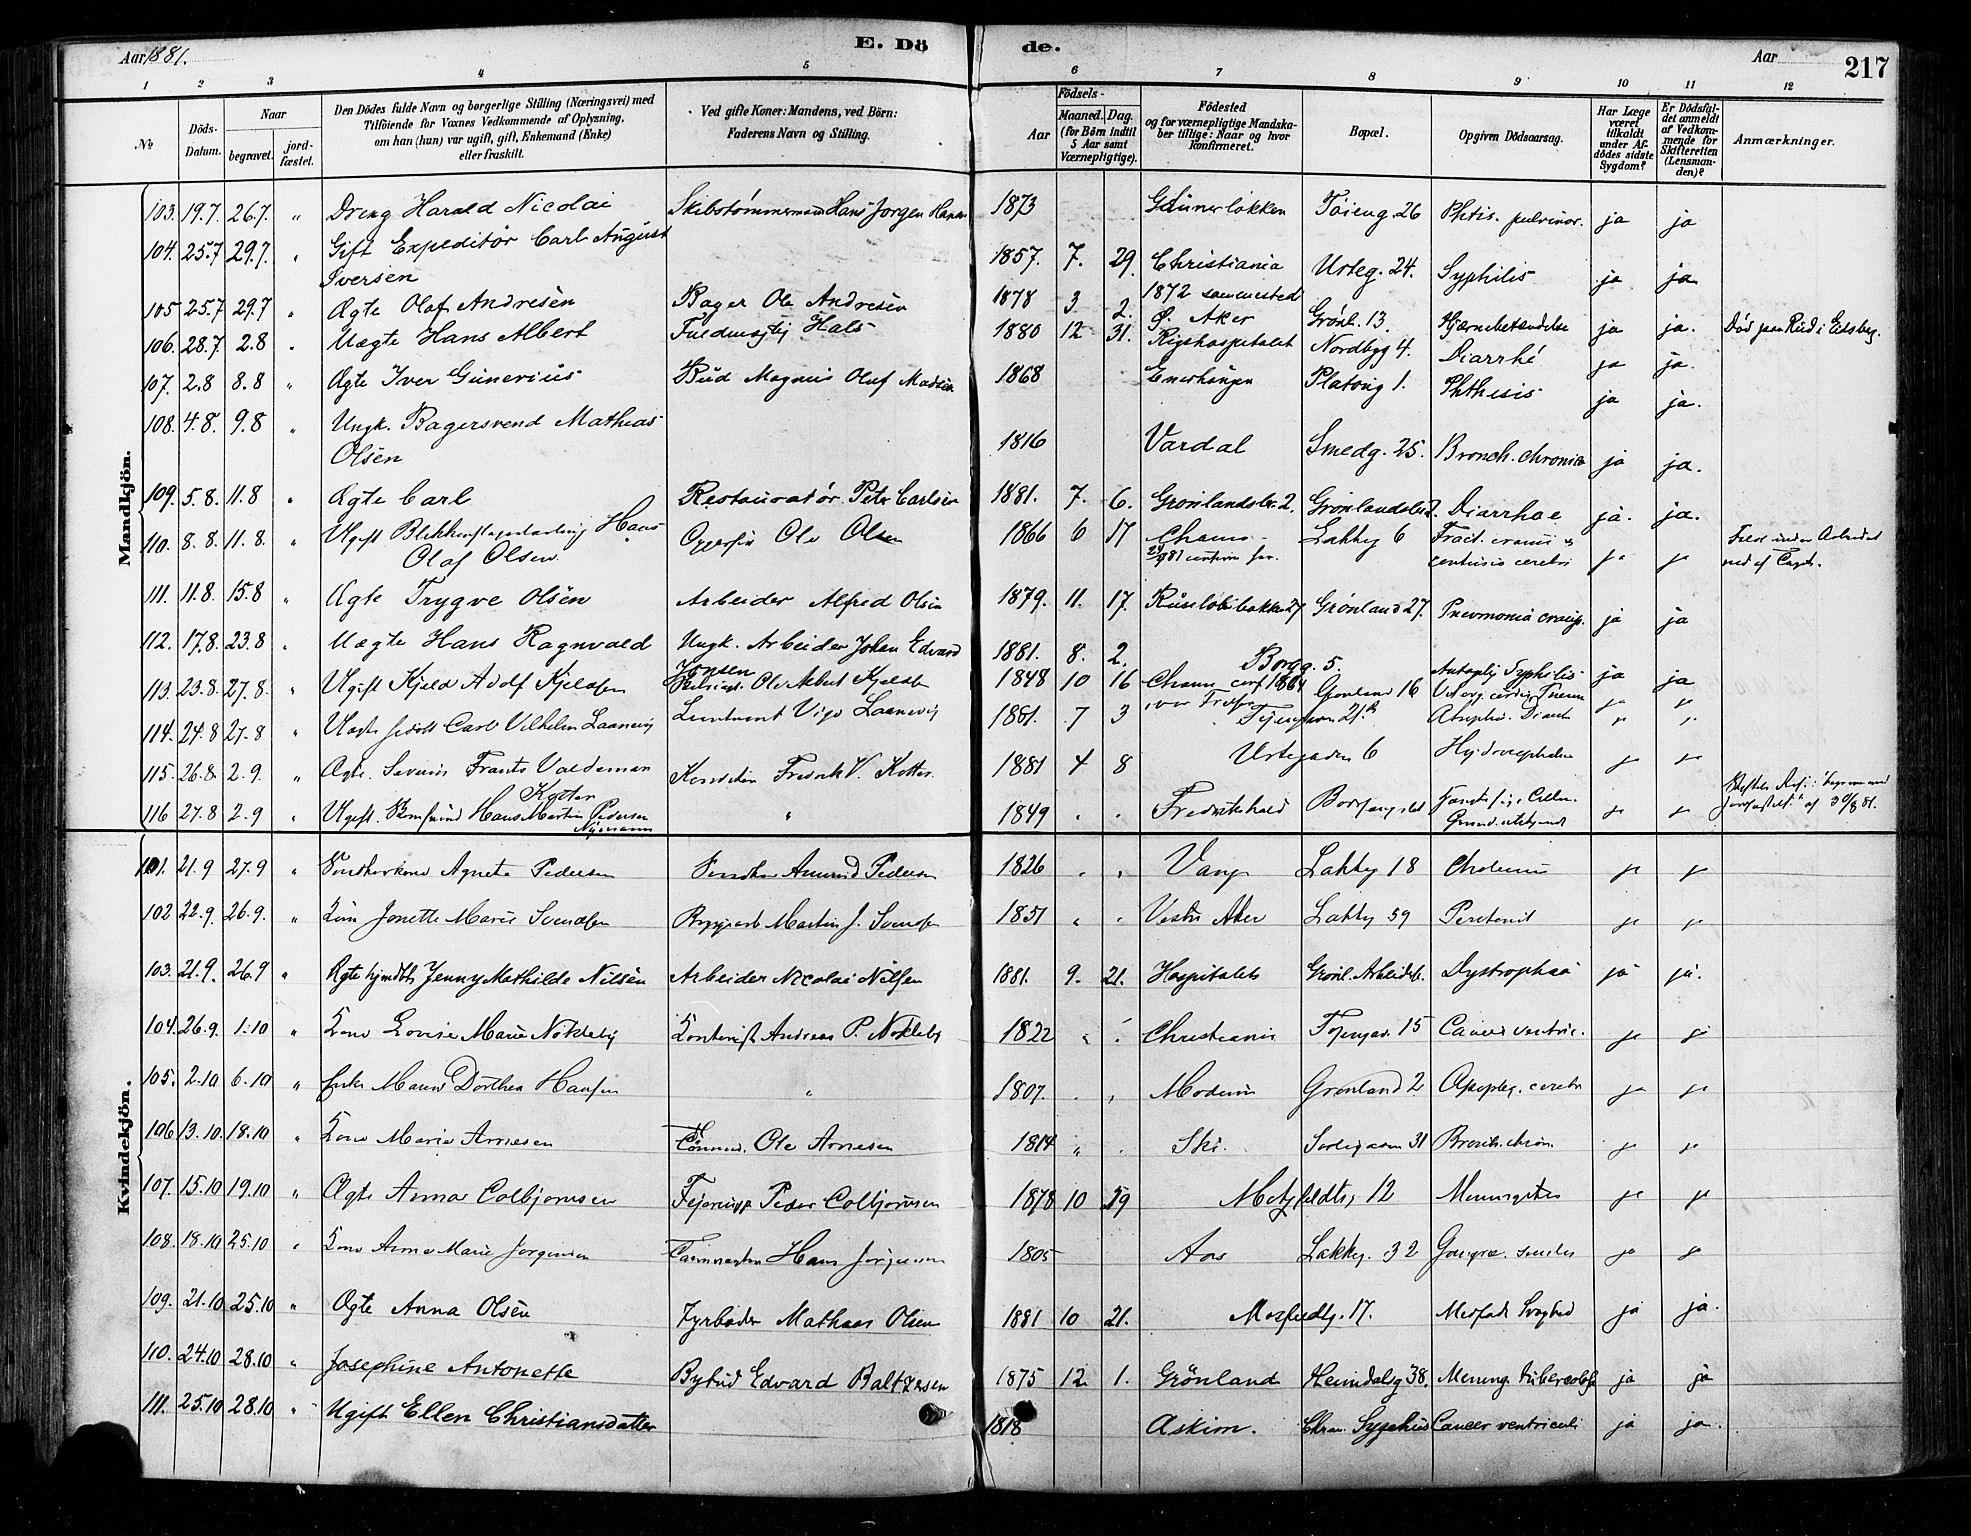 Aar 1881. E. Döde. Aar 217
1 2 3 4 5 6 7 8 9 10 11 12
No
Döds-Datum.
Naar
begravet.
jord-fæstet.
Den Dödes fulde Navn og borgerlige Stilling (Næringsvei) med
Tilföiende for Vaxnes Vedkommende af Oplysning,
om han (hun) var ugift, gift, Enkemand (Enke)
eller fraskilt.
Ved gifte Koner: Mandens, ved Børn:
Faderens Navn og Stilling.
Födsels-
Aar
Maaned. Dag.
(for Börn indtil
5 Aar samt
Værnepligtige).
Födested
og for værnepligtige Mandska-
ber tillige: Naar og hvor
konfirmeret.
Bopæl.
Opgiven Dödsaarsag.
Har Læge
været
tilkaldt
under Af-
dödes sidste
Sygdom?
Er Dödsfal-
det anmeldt
af Vedkom-
mende for
Skifteretten
(Lensman-
den)?
Anmærkninger.
Mandkjön.
103. 19.7. 26.7. " Dreng Harald Nicolai Skibstømmermand Hans Jørgen Hansen 1873 Grünerløkken Töieng. 26 Phtis. pulmonor. ja ja
104. 25.7 29.7. " Gift Expeditör Carl August
Iversen 1857. 7. 29. Christiania Urteg. 24. Syphilis ja ja
1872 sammested
105 25.7 29.7 " Ægte Olaf Andresén Bager Ole Andresén 1878 3 2. Ø. Aker Grønl. 13. Hjærnebetændelse ja ja. Død paa Rud i Eidsberg.
106. 28.7. 2.8 " Uægte Hans Albert Fuldmægtig Hals 1880 12 31. Rigshospitalet Nordbyg 4. Diarrhé ja ja.
107. 2.8 8.8 " Ægte Iver Gunerius Bud Magnus Olaf Madsen 1868 Enerhaugen Platoug 1. Phthisis ja ja.
108. 4.8. 9.8 " Ungk. Bagersvend Mathias
Olsén 1816 Vardal Smedg. 25. Bronch. chronica ja ja.
109. 5.8. 11.8 " Ægte Carl Restauratør Peter Carlsen 1881. 7. 6. Grønlandsler. 2. Diarrhoe ja. ja.
110. 8.8. 11.8. " Ugift Hans
Olaf Olsen Ole Olsen 1866 6 17 Lakkeg 6 Fract. cranii &
contusio cerebri ja ja
111. 11.8. 15.8 " Ægte Trygve Olsén Arbeider Alfred Olsen 1879. 11. 17. Grønland 27. Pnevmonia croup. ja ja
112. 17.8. 23.8 " Uægte Hans Ragnvald Ungk. Arbeider Johan Edvard
Jonsen 1881. 8. 2. Borgg. 5. Syphilis ja ja
113. 23.8. 27.8. " Ugift Kjeld Adolf Kjelsen Ole Albert 1848 10 16 Grønland 16 ja ja
114. 24.8 27.8 " Carl Vilhelm 1881. 7 3 Atrophi. ja ja
115. 26.8. 2.9. " Ægte. Severin Frants Valdemar
Kotter Fredrik V. Kotter 1881 4 8 Urtegaden 6 Hydrocephalus ja ja
116 27.8 2.9 " Ugift Hans Martin Pedersen " 1849 " " Fredrikshald ja ja
Kvindekjön.
101. 21.9 27.9 " Agnete Pedersen Amund Pedersen 1826 " " Vang Lakkeg 18 ja ja
102 22.9. 26.9. " Jonette Marie Svendsen Martin J. Svendsen 1851 " " Vestre Aker Lakkeg 59 Peritonit ja ja
103. 21.9. 26.9 " Ægte hjmdbt. Jenny Mathilde Nilsén Arbeider Nicolai Nilsen 1881. 9. 21. Hospitalets Grønl. Arbeidsb. Dystrophia ja ja.
104. 26.9. 1.10 " Kone Lovise Marie Nøkleby Kontorist Andreas P. Nøkleby 1822 " " Christiania 15 Cancer ventric. ja ja
105. 2.10 6.10 " Enke Maren Dorthea Hansen " 1807. " " Modum Grønland 2 Apopleg. cerebri ja ja
106 13.10. 18.10 " Kone Marie Arnesen Tømmerm. Ole Arnesen 1814 " " Ski. 31 Bronch. chron. ja ja
107. 15.10 19.10 " Ægte Anna Colbjørnsen Peder Colbjørnsen 1878 10 29 12 Meningitis ja ja
108. 18.10 25.10 " Kone Anne Marie Jørgensen Hans Jørgensen 1805 Aas Lakkeg. 32 Gangræ. senilis ja ja
109. 21.10 25.10 " Ægte Anna Olsén Fyrbøder Mathias Olsen 1881 10 21. 17. Medfødt Svaghed ja ja.
110. 24.10 28.10 " Josephine Antonette Bybud Edvard Baltzersen 1875 12 1. Grönland Heimdalsg 38. Mening. tuberculosa ja ja
111. 25.10 28.10 " Ugift Ellen Christiansdatter 1818 Askim. Chran. Sygehus Cancer ventriculi ja ja.